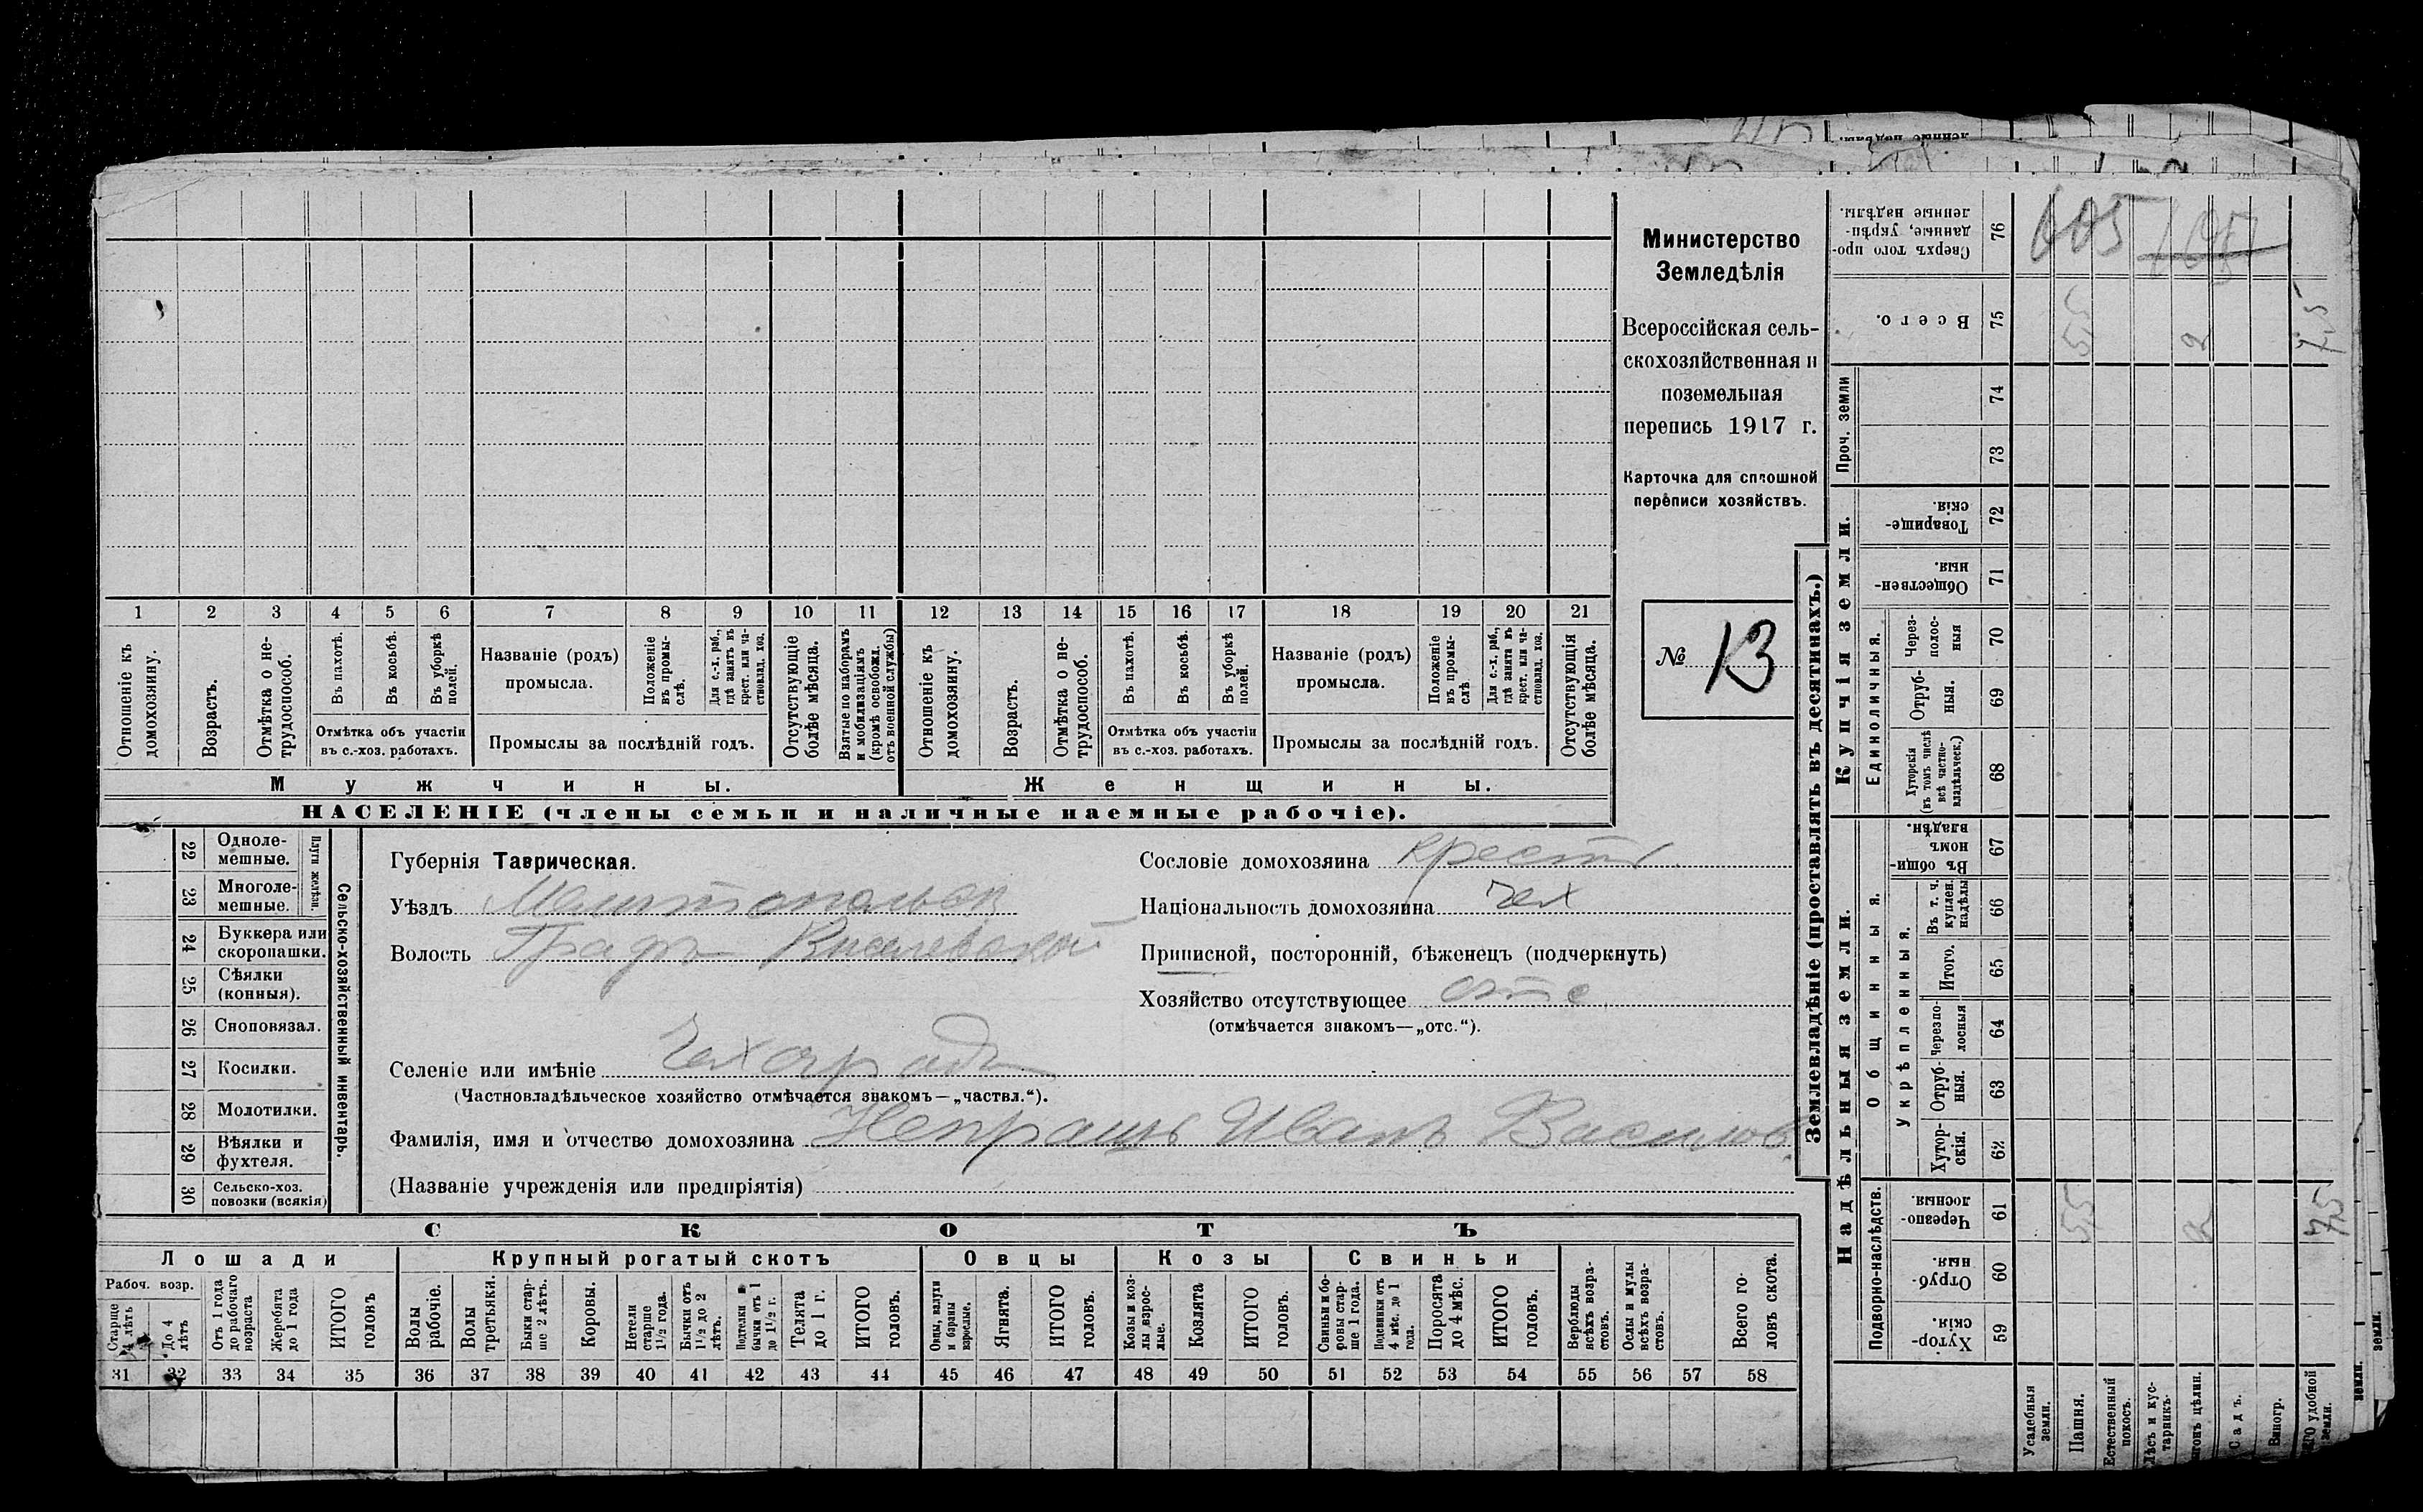 Министерство
Земледѣлія
Всероссійская сель-
скохозяйственная и
поземельная
перепись 1917 г.
Карточка для сплошной
переписи хозяйствъ.
№ 13
1 2 3 4 5 6 7 8 9 10 11 12 13 14 15 16 17 18 19 20 21
Отношеніе къ домохозяину.
Возрастъ.
Отмѣтка о не-трудоспособ.
Въ пахотѣ.
Въ косьбѣ.
Въ уборкѣ полей.
Отмѣтка объ участіи
въ с.-хоз. работахъ.
Названіе (родъ)
промысла.
Положеніе въ промы-слѣ.
Для с.-х. раб., гдѣ занятъ въ крест. или ча-стновлад. хоз.
Промыслы за послѣдній годъ.
Отсутствующіе болѣе мѣсяца.
Взятые по наборамъ и мобилизаціямъ (кромѣ освобожд. отъ военной службы)
Отношеніе къ домохозяину.
Возрастъ.
Отмѣтка о не-трудоспособ.
Въ пахотѣ.
Въ косьбѣ.
Въ уборкѣ полей.
Отмѣтка объ участіи
въ с.-хоз. работахъ.
Названіе (родъ)
промысла.
Положеніе въ промы-слѣ
Для с.-х. раб., гдѣ занята въ крест. или ча-стновлад. хоз.
Промыслы за послѣдній годъ.
Отсутствующія болѣе мѣсяца.
Мужчины.
Женщины.
НАСЕЛЕНІЕ (члены семьи и наличные наемные рабочіе).
Сельско-хозяйственный инвентарь.
Плуги желѣзн.
22 Одноле-мешные.
23 Многоле-мешные.
24 Буккера или скоропашки.
25 Сѣялки (конныя).
26 Сноповязал.
27 Косилки.
28 Молотилки.
29 Вѣялки и фухтеля.
30 Сельско-хоз. повозки (всякія)
Губернія Таврическая.
Уѣздъ Мелитопольск
Волость Графъ Киселевской
Селеніе или имѣніе Чехоградъ
(Частновладѣльческое хозяйство отмѣчается знакомъ—„частвл.“).
Фамилія, имя и отчество домохозяина Непрашъ Иванъ Василов
(Названіе учрежденія или предпріятія)
Сословіе домохозяина крестян
Національность домохозяина чех
Приписной, посторонній, бѣженецъ (подчеркнуть)
Хозяйство отсутствующее отс
(отмѣчается знакомъ—„отс.“).
СКОТЪ
Лошади
Крупный рогатый скотъ
Овцы
Козы
Свиньи
Рабоч. возр.
Старше 4 лѣтъ
До 4 лѣтъ
Отъ 1 года до рабочаго возраста
Жеребята до 1 года
ИТОГО головъ
Волы рабочіе.
Волы третьяки.
Быки стар-ше 2 лѣтъ.
Коровы.
Нетели старше 1½ года.
Бычки отъ 1½ до 2 лѣтъ.
бычки отъ 1 до 1½ г.
Телята до 1 г.
ИТОГО головъ.
Овцы, валухи и бараны взрослые.
Ягнята.
ИТОГО головъ.
Козы и коз-лы взрос-лые.
Козлята
ИТОГО головъ.
Свиньи и бо-ровы стар-ше 1 года.
Подсвинки отъ 4 мѣс. до 1 года.
Поросята до 4 мѣс.
ИТОГО головъ.
Верблюды всѣхъ возра-стовъ.
Ослы и мулы всѣхъ возра-стовъ.
Всего го-ловъ скота.
31 32 33 34 35 36 37 38 39 40 41 42 43 44 45 46 47 48 49 50 51 52 53 54 55 56 57 58
Землевладѣніе (проставлять въ десятинахъ.)
Надѣльныя земли.
Купчія земли.
Проч. земли
Подворно-наслѣдств.
Общинныя.
Укрѣпленныя.
Единоличныя.
Сверхъ того про-данные, укрѣп-ленные надѣлы. 76
Всего. 75 5,5 2 7,5
74
73
Товарище-скія. 72
Обществен-ныя. 71
Через-полос-ныя 70
Отруб-ныя. 69
Хуторскія (въ томъ числѣ всѣ частно-владѣльческ.) 68
Въ общин-номъ владѣн. 67
Въ т. ч. куплен. надѣлы 66
Итого. 65
Черезпо-лосныя 64
Отруб-ныя. 63
Хутор-скія. 62
Черезпо-лосныя. 61 5,5 2 7,5
Отруб-ныя 60
Хутор-скія. 59
Усадебныя земли.
Пашня.
Естественный покосъ.
Лѣсъ и кус-тарникъ.
Садъ.
Виногр.
удобной земли.